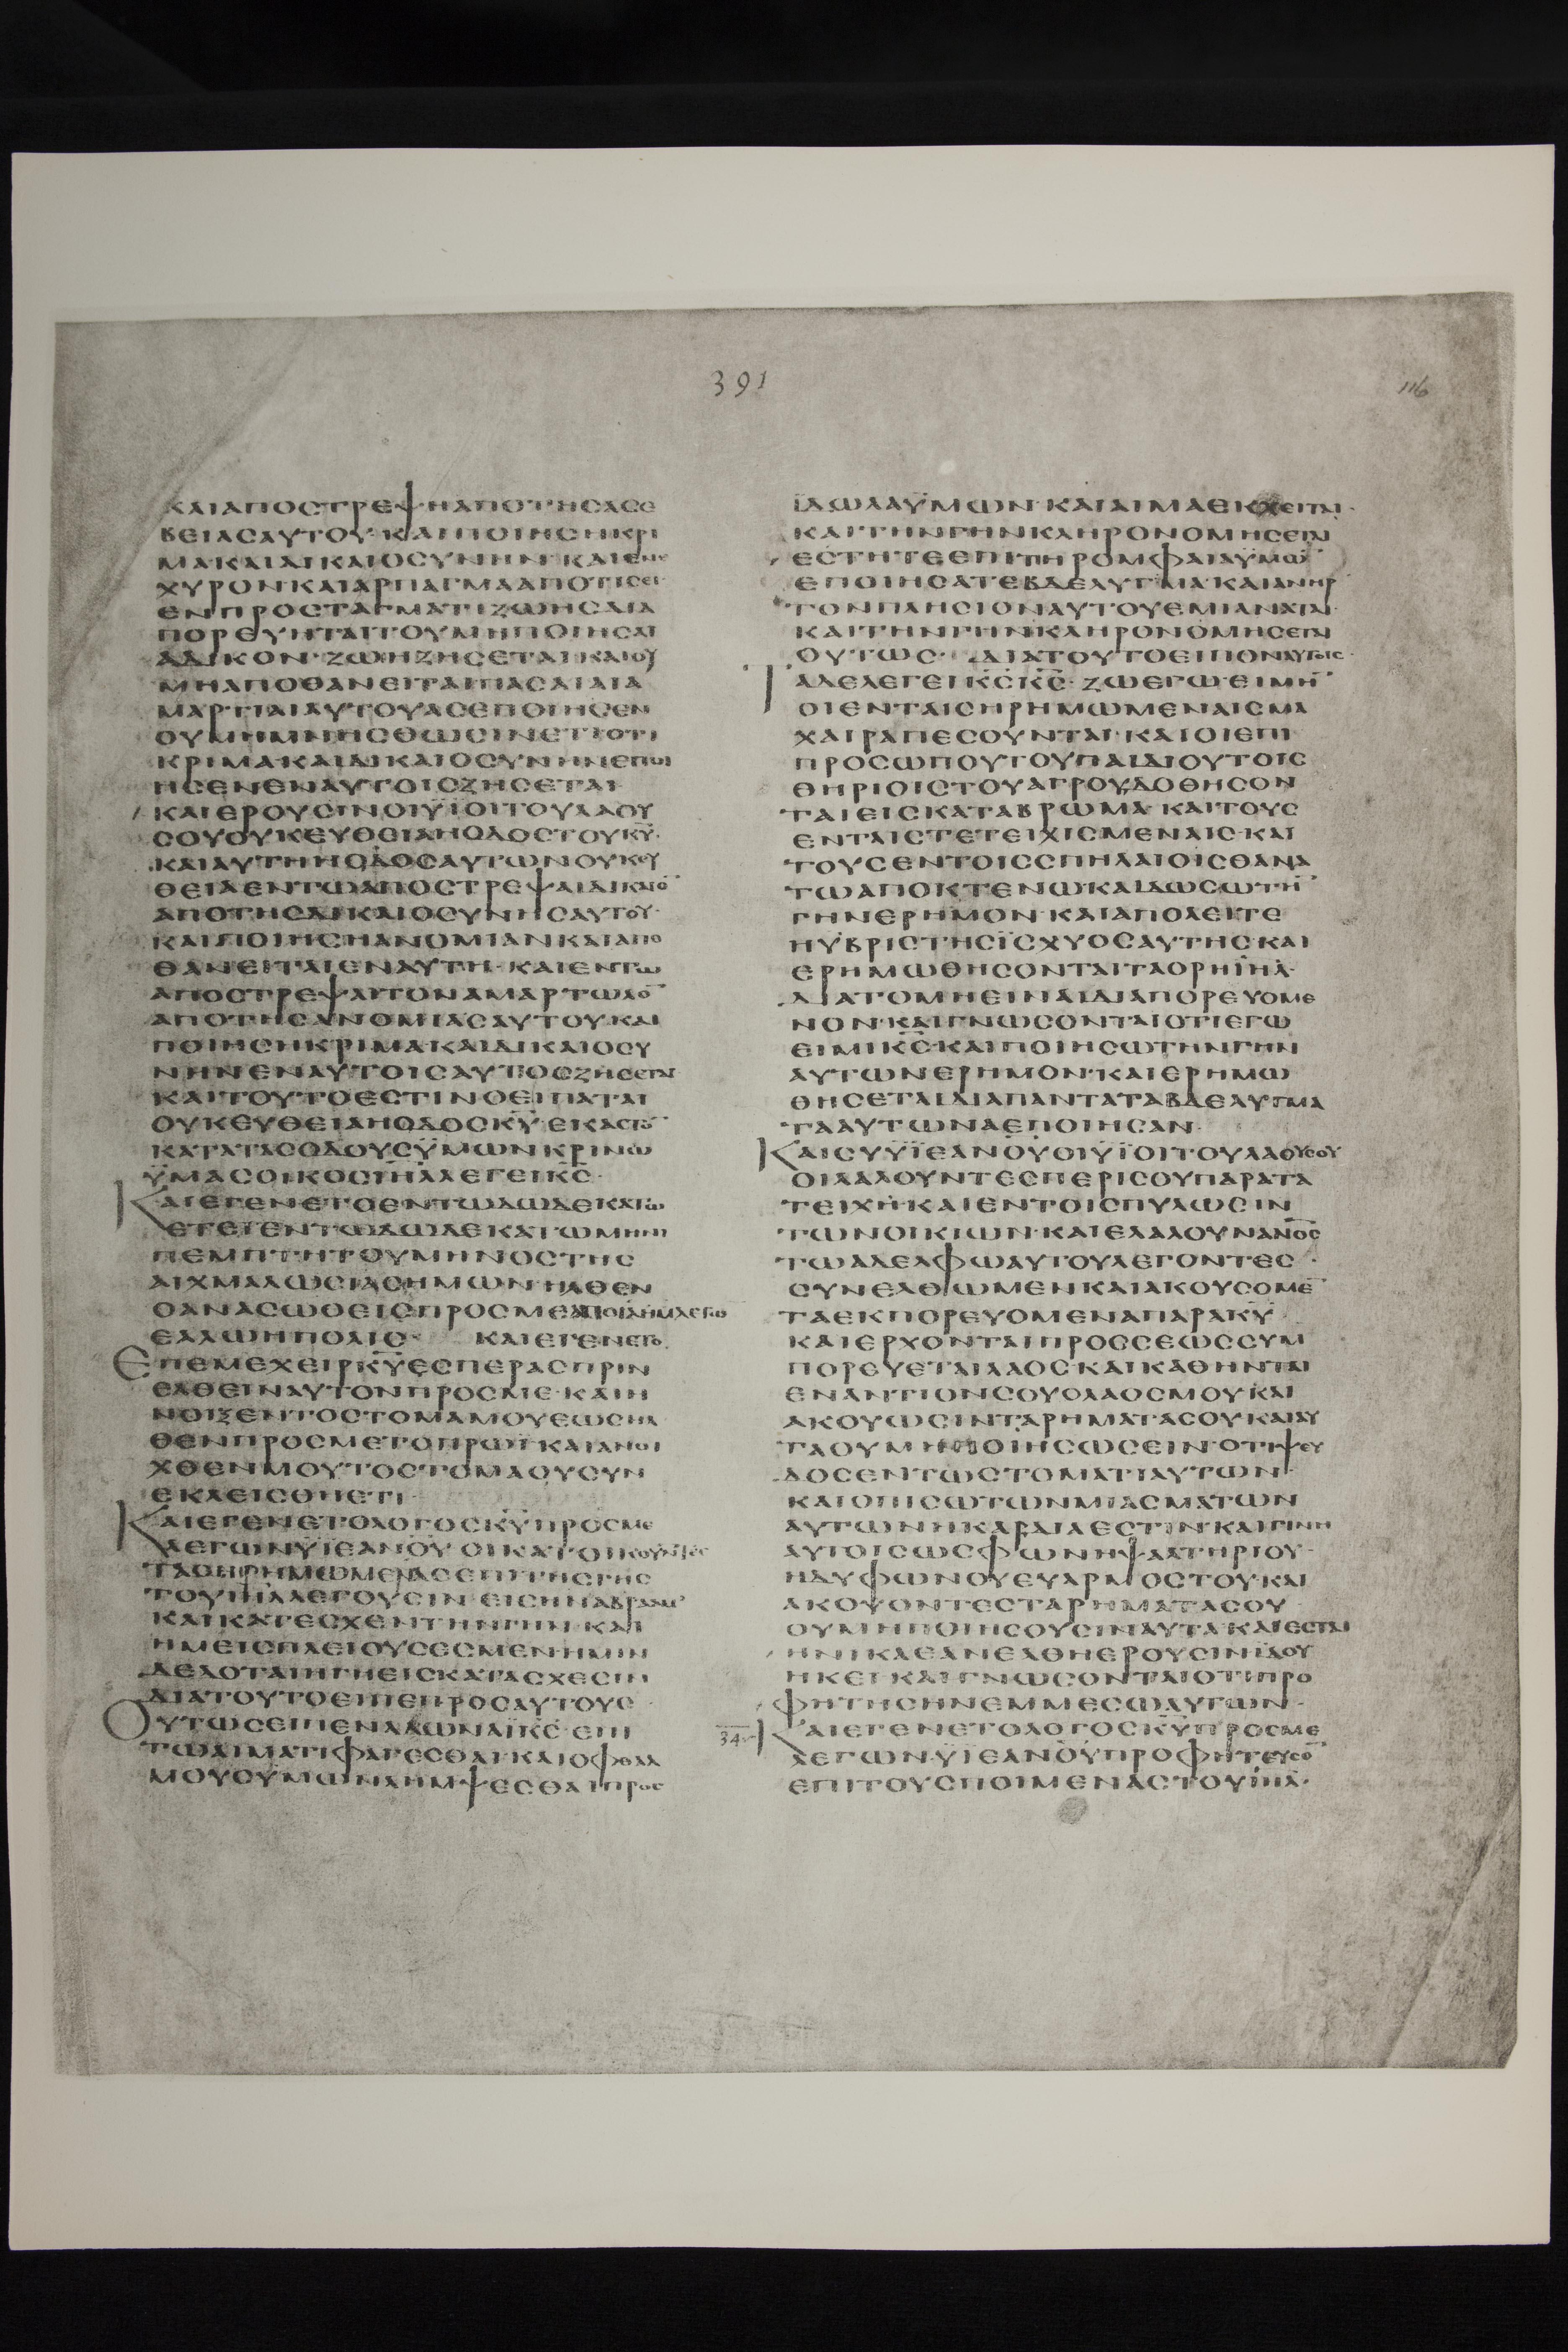 391
116
ΚΑΙΑΠΟΣΤΡΕΨΗΑΠΟΤΗСΑСΕ
ΒΕΙΑСΑΥΤΟΥ·ΚΑΙΠΟΙΗСΗΚΡΙ
ΜΑΚΑΙΔΙΚΑΙΟСΥΝΗΝ·ΚΑΙΕΝΕ
ΧΥΡΟΝΚΑΙΑΡΠΑΓΜΑΑΠΟΤΙСΕΙ·
ΕΝΠΡΟСΤΑΓΜΑΤΙΖΩΗСΔΙΑ
ΠΟΡΕΥΗΤΑΙΤΟΥΜΗΠΟΙΗСΑΙ
ΑΔΙΚΟΝ·ΖΩΗΖΗСΕΤΑΙΚΑΙΟΥ
ΜΗΑΠΟΘΑΝΕΙΤΑΙΠΑСΑΙΑΙΑ
ΜΑΡΤΙΑΙΑΥΤΟΥΑСΕΠΟΙΗСΕΝ
ΟΥΜΗΜΝΗСΘΩСΙΝΕΤΙΟΤΙ
ΚΡΙΜΑΚΑΙΔΙΚΑΙΟСΥΝΗΝΕΠΟΙ
ΗСΕΝΕΝΑΥΤΟΙСΖΗСΕΤΑΙ
ΚΑΙΕΡΟΥСΙΝΟΙΥΪΟΙΤΟΥΛΑΟΥ
СΟΥΟΥΚΕΥΘΕΙΑΗΟΔΟСΤΟΥΚΥ̅·
ΚΑΙΑΥΤΗΗΟΔΟСΑΥΤΩΝΟΥΚΕΥ
ΘΕΙΑΕΝΤΩΑΠΟСΤΡΕΨΑΙΔΙΚΑΙΟ̅
ΑΠΟΤΗСΔΙΚΑΙΟСΥΝΗСΑΥΤΟΥ·
ΚΑΙΠΟΙΗСΗΑΝΟΜΙΑΝΚΑΙΑΠΟ
ΘΑΝΕΙΤΑΙΕΝΑΥΤΗ·ΚΑΙΕΝΤΩ
ΑΠΟСΤΡΕΨΑΙΤΟΝΑΜΑΡΤΩΛΟ̅
ΑΠΟΤΗСΑΝΟΜΙΑСΑΥΤΟΥΚΑΙ
ΠΟΙΗСΗΚΡΙΜΑΚΑΙΔΙΚΑΙΟСΥ
ΝΗΝΕΝΑΥΤΟΙСΑΥΤΟСΖΗСΕΤΑΙ
ΚΑΙΤΟΥΤΟΕСΤΙΝΟΕΙΠΑΤΑΙ
ΟΥΚΕΥΘΕΙΑΗΟΔΟСΚΥ̅·ΕΚΑСΤΟ̅
ΚΑΤΑΤΑСΟΔΟΥСΫΜΩΝΚΡΙΝΩ
ΫΜΑСΟΙΚΟСΙΗΛ̅ΛΕΓΕΙΚС̅·
ΚΑΙΕΓΕΝΕΤΟΕΝΤΩΔΩΔΕΚΑΤΩ
ΕΤΕΙΕΝΤΩΔΩΔΕΚΑΤΩΜΗΝΙ
ΠΕΜΠΤΗΤΟΥΜΗΝΟСΤΗС
ΑΙΧΜΑΛΩСΙΑСΗΜΩΝΗΛΘΕΝ
ΟΑΝΑСΩΘΕΙСΠΡΟСΜΕΑΠΟΙΛΗΜΛΕΓΩ
ΕΑΛΩΗΠΟΛΙС· ΚΑΙΕΓΕΝΕΤΟ
ΕΠΕΜΕΧΕΙΡΚΥ̅ΕСΠΕΡΑСΠΡΙΝ
ΕΛΘΕΙΝΑΥΤΟΝΠΡΟСΜΕ·ΚΑΙΗ
ΝΟΙΞΕΝΤΟСΤΟΜΑΜΟΥΕΩСΗΛ
ΘΕΝΠΡΟСΜΕΤΟΠΡΩΪΚΑΙΑΝΟΙ
ΧΘΕΝΜΟΥΤΟСΤΟΜΑΟΥСΥΝ
ΕΚΛΕΙСΘΗΕΤΙ·
ΚΑΙΕΓΕΝΕΤΟΛΟΓΟСΚΥ̅ΠΡΟСΜΕ
ΛΕΓΩΝΫΪΕΑΝΟΥ̅ΟΙΚΑΤΟΙΚΟΥΝΤΕС
ΤΑСΗΡΗΜΩΜΕΝΑСΕΠΙΤΗСΓΗС
ΤΟΥΙΗΛ̅ΛΕΓΟΥСΙΝ·ΕΙСΗΝΑΒΡΑΑΜ
ΚΑΙΚΑΤΕСΧΕΝΤΗΝΓΗΝ·ΚΑΙ
ΗΜΕΙСΠΛΕΙΟΥСΕСΜΕΝΗΜΙΝ
ΔΕΔΟΤΑΙΗΓΗΕΙСΚΑΤΑСΧΕСΙΝ
ΔΙΑΤΟΥΤΟΕΙΠΕΠΡΟСΑΥΤΟΥС
ΟΥΤΩСΕΙΠΕΝΑΔΩΝΑΪΚС̅·ΕΠΙ
ΤΩΑΙΜΑΤΙΦΑΓΕСΘΑΙ·ΚΑΙΟΦΘΑΛ
ΜΟΥСΫΜΩΝΛΗΜΨΕСΘΑΙΠΡΟС
ΪΔΩΛΑΫΜΩΝ·ΚΑΙΑΙΜΑΕΚΧΕΙΤΑΙ·
ΚΑΙΤΗΝΓΗΝΚΛΗΡΟΝΟΜΗСΕΤΑΙ
ΕСΤΗΤΕΕΠΙΤΗΡΟΜΦΑΙΑΫΜΩ̅
ΕΠΟΙΗСΑΤΕΒΔΕΛΥΓΜΑ·ΚΑΙΑΝΗΡ
ΤΟΝΠΛΗСΙΟΝΑΥΤΟΥΕΜΙΑΝΑΤΑΙ
ΚΑΙΤΗΝΓΗΝΚΛΗΡΟΝΟΜΗСΕΤΑΙ
ΟΥΤΩС· ΔΙΑΤΟΥΤΟΕΙΠΟΝΑΥΤΟΙС·
ΤΑΔΕΛΕΓΕΙΚС̅ΚС̅·ΖΩΕΓΩ·ΕΙΜΗ̅
ΟΙΕΝΤΑΙСΗΡΗΜΩΜΕΝΑΙСΜΑ
ΧΑΙΡΑΠΕСΟΥΝΤΑΙ·ΚΑΙΟΙΕΠΙ
ΠΡΟСΩΠΟΥΤΟΥΠΑΙΔΙΟΥΤΟΙС
ΘΗΡΙΟΙСΤΟΥΑΓΡΟΥΔΟΘΗСΟΝ
ΤΑΙΕΙСΚΑΤΑΒΡΩΜΑ·ΚΑΙΤΟΥС
ΕΝΤΑΙСΤΕΤΕΙΧΙСΜΕΝΑΙС·ΚΑΙ
ΤΟΥСΕΝΤΟΙССΠΗΛΑΙΟΙСΘΑΝΑ
ΤΩΑΠΟΚΤΕΝΩ·ΚΑΙΔΩСΩΤΗ̅
ΓΗΝΕΡΗΜΟΝ·ΚΑΙΑΠΟΛΕΙΤΕ
ΗΫΒΡΙСΤΗСΪСΧΥΟСΑΥΤΗС·ΚΑΙ
ΕΡΗΜΩΘΗСΟΝΤΑΙΤΑΟΡΗΙΗΛ̅·
ΔΙΑΤΟΜΗΕΙΝΑΙΔΙΑΠΟΡΕΥΟΜΕ
ΝΟΝ·ΚΑΙΓΝΩСΟΝΤΑΙΟΤΙΕΓΩ
ΕΙΜΙΚС̅·ΚΑΙΠΟΙΗСΩΤΗΝΓΗΝ
ΑΥΤΩΝΕΡΗΜΟΝ·ΚΑΙΕΡΗΜΩ
ΘΗСΕΤΑΙΔΙΑΠΑΝΤΑΤΑΒΔΕΛΥΓΜΑ
ΤΑΑΥΤΩΝΑΕΠΟΙΗСΑΝ·
ΚΑΙСΥΥΪΕΑΝΟΥ̅ΟΙΥΪΟΙΤΟΥΛΑΟΥСΟΥ
ΟΙΛΑΛΟΥΝΤΕСΠΕΡΙСΟΥΠΑΡΑΤΑ
ΤΕΙΧΗ·ΚΑΙΕΝΤΟΙСΠΥΛΩСΙΝ
ΤΩΝΟΙΚΙΩΝ·ΚΑΙΕΛΑΛΟΥΝΑΝΟ̅С
ΤΩΑΔΕΛΦΩΑΥΤΟΥΛΕΓΟΝΤΕС·
СΥΝΕΛΘΩΜΕΝΚΑΙΑΚΟΥСΟΜΕ̅
ΤΑΕΚΠΟΡΕΥΟΜΕΝΑΠΑΡΑΚΥ̅
ΚΑΙΕΡΧΟΝΤΑΙΠΡΟССΕΩССΥΜ
ΠΟΡΕΥΕΤΑΙΛΑΟС·ΚΑΙΚΑΘΗΝΤΑΙ
ΕΝΑΝΤΙΟΝСΟΥΟΛΑΟСΜΟΥΚΑΙ
ΑΚΟΥΩСΙΝΤΑΡΗΜΑΤΑСΟΥΚΑΙΑΥ
ΤΑΟΥΜΗΠΟΙΗСΩСΕΙΝ·ΟΤΙΨΕΥ
ΔΟСΕΝΤΩСΤΟΜΑΤΙΑΥΤΩΝ·
ΚΑΙΟΠΙСΩΤΩΝΜΙΑСΜΑΤΩΝ
ΑΥΤΩΝΗΚΑΡΔΙΑΕСΤΙΝ·ΚΑΙΓΙΝΗ
ΑΥΤΟΙСΩСΦΩΝΗΨΑΛΤΗΡΙΟΥ·
ΗΔΥΦΩΝΟΥΕΥΑΡΜΟСΤΟΥΚΑΙ
ΑΚΟΥΟΝΤΕСΤΑΡΗΜΑΤΑСΟΥ
ΟΥΜΗΠΟΙΗСΟΥСΙΝΑΥΤΑ·ΚΑΙΕСΤΑΙ
ΗΝΙΚΑΕΑΝΕΛΘΗΕΡΟΥСΙΝΪΔΟΥ
ΗΚΕΙ·ΚΑΙΓΝΩСΟΝΤΑΙΟΤΙΠΡΟ
ΦΗΤΗСΗΝΕΜΜΕСΩΑΥΤΩΝ·
34 ΚΑΙΕΓΕΝΕΤΟΛΟΓΟСΚΥ̅ΠΡΟСΜΕ
ΛΕΓΩΝ·ΥΪΕΑΝΟΥ̅ΠΡΟΦΗΤΕΥСΟ̅
ΕΠΙΤΟΥСΠΟΙΜΕΝΑСΤΟΥΙΗΛ̅·